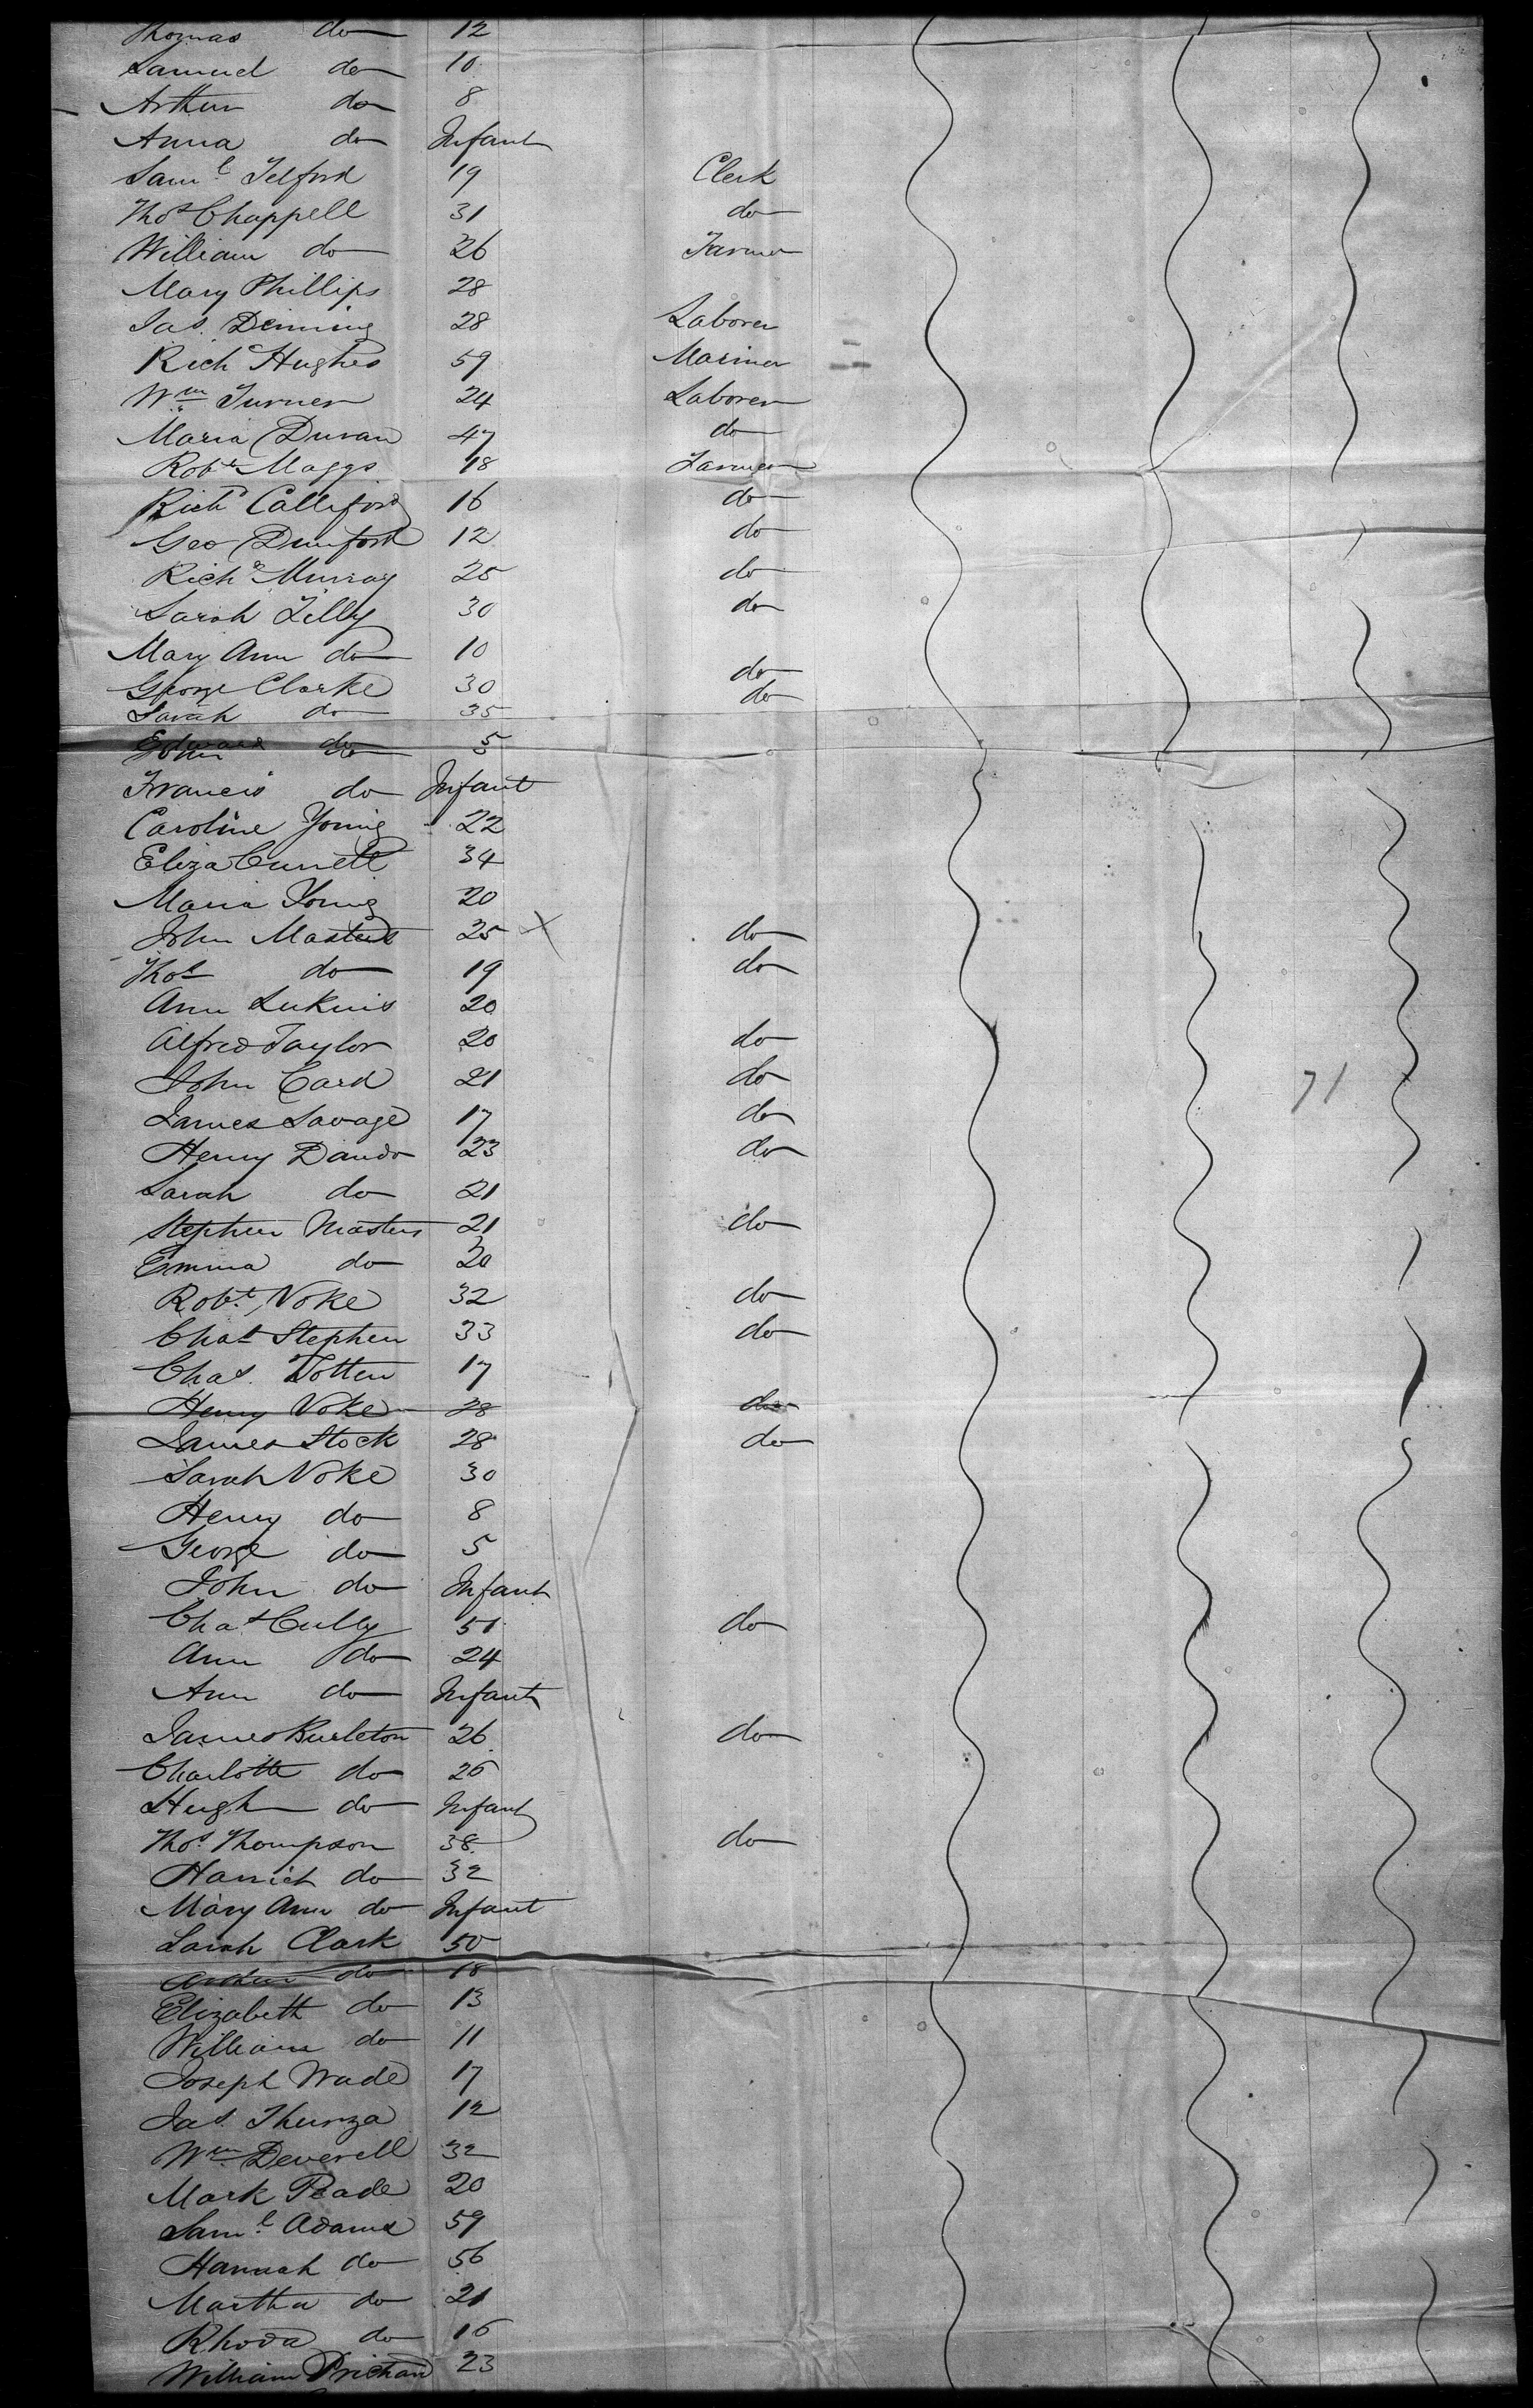 Thomas do 12
Samuel do 10
Arthur do 8
Anna do Infant
Saml Telford 19 Clerk
Thos Chappell 31 do
William do 26 Farmer
Mary Phillips 28
Jas. Dimming 28 Laborer
Richd Hughes 59 Mariner
Wm Turner 24 Laborer
Maria Duran 47 do
Robt Maggs 18 Farmer
Richd Calliford 16 do
Geo Dunford 12 do
Richd Murray 25 do
Sarah Tilly 30 do
Mary Ann do 10
George Clarke 30 do
Sarah do 35 do
John do 5
Francis do Infant
Caroline Young 22
Eliza 34
Maria Young 20
John Masters 25 X do
Thos do 19 do
Ann Lukins 20
Alfred Taylor 20 do
John Card 21 do
James Savage 17 do
Henry Dando 23 do
Sarah do 21
Stephen Masters 21 do
Emma do 20
Robt. Voke 32 do
Chas Stephen 33 do
Chas. Totten 17
Henry Voke 28 do
James Stock 28 do
Sarah Voke 30
Henry do 8
George do 5
John do Infant
Chas Cully 51 do
Ann do 24
Ann do Infant
James Burleton 26 do
Charlotte do 25
Hugh do Infant
Thos. Thompson 38 do
Harriet do 32
Mary Ann do Infant
Sarah Clark 50
Arthur do 18
Elizabeth do 13
William do 11
Joseph Wade 17
Jas. 12
Wm Deverell 32
Mark Peade 20
Saml. Adams 59
Hannah do 56
Martha do 21
Rhoda do 16
William Prichard 23
71